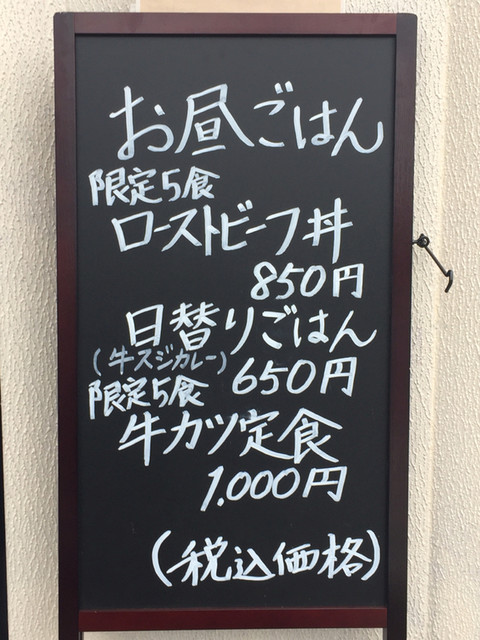 お昼ごはん
限定5食
ローストビーフ丼
850円
日替りごはん
(牛スジカレー) 650円
限定5食
牛カツ定食
1.000円
(税込価格)